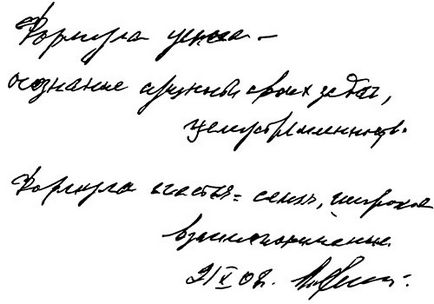 Формула успеха –
осознание нужности своих задач,
целеустремленность.
Формула счастья = семья, широкое
взаимопонимание.
21 X 02.